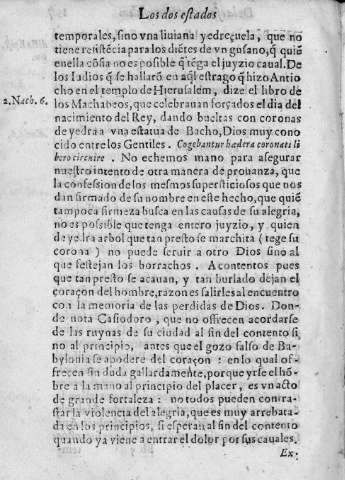 Los dos estados
temporales, sino vna liuiana yedreçuela, que no
tiene resistẽcia para los diẽtes de vn gusano, q̃ quiẽ
en ella cõfia no es posible q̃ tẽga el juyzio cabal. De
los Iudios q̃ se hallarõ en aq̃l estrago q̃ hizo Antio
cho en el templo de Hierusalem, dize el libro de
2. Mach. 6.
los Machabeos, que celebrauan forçados el dia del
nacimiento del Rey, dando bueltas con coronas
de yedra a vna estatua de Bacho, Dios muy cono
cido entre los Gentiles. Cogebantur hædera coronati li
bero circuire. No echemos mano para asegurar
nuestro intento de otra manera de prouanza, que
la confession de los mesmos supersticiosos que nos
dan firmado de su nombre en este hecho, que quiẽ
tampoca firmeza busca en las causas de su alegria,
no es posible que tenga entero juyzio, y quien
de yedra arbol que tan presto se marchita (tege su
corona) no puede seruir a otro Dios sino al
que festejan los borrachos. A contentos pues
que tan presto se acauan, y tan burlado dejan el
coraçon del hombre, razon es salirles al encuentro
con la memoria de las perdidas de Dios. Don-
de nota Casiodoro, que no ofrecen acordarse
de las ruynas de su ciudad al fin del contento si
no al principio, antes que el gozo falso de Ba-
bylonia se apodere del coraçon: en lo qual of-
frecen sin duda gallardamẽte, porque yrse el hõ-
bre a la mano al principio del placer, es vn acto
de grande fortaleza: no todos pueden contra-
star la violencia del alegria, que es muy arrebata-
da en los principios, si esperan al fin del contento
quando ya viene a entrar el dolor por sus cauales.
Ex-